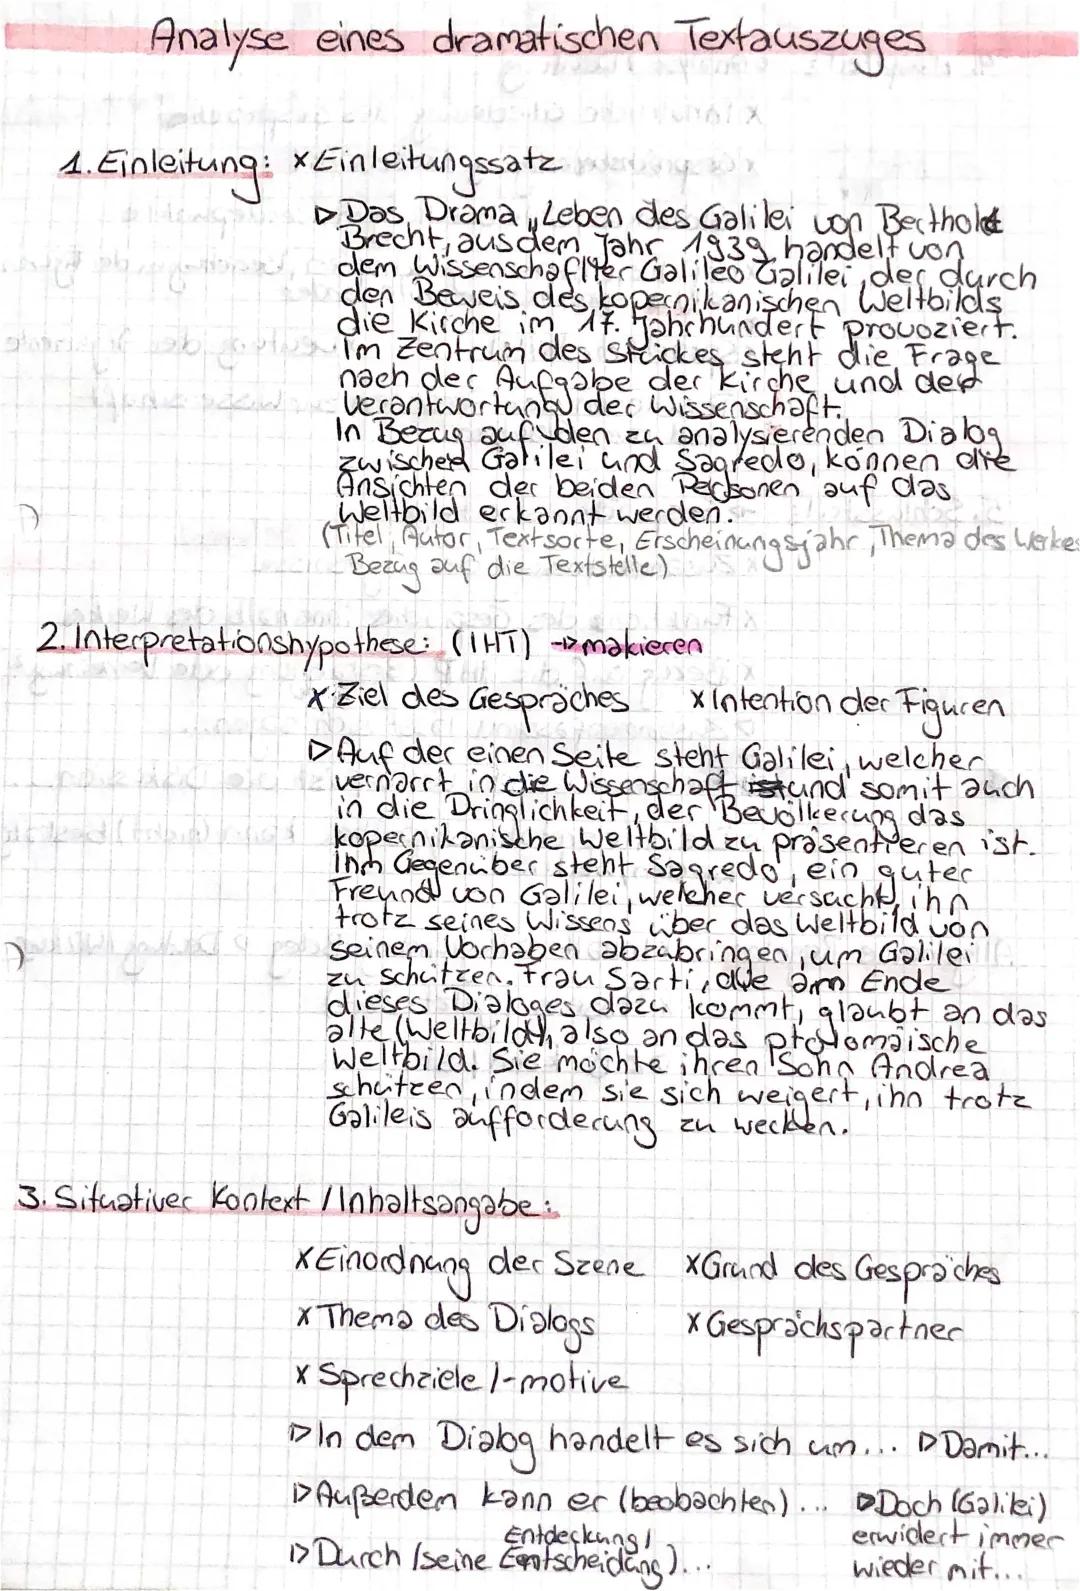 Analyse eines dramatischen Textauszuges
1. Einleitung: x Einleitungssatz
▷ Das Drama „Leben des Galilei von Berthold
Brecht, aus dem Jahr 1939 handelt von
dem Wissenschaflter Galileo Galilei, der durch
den Beweis des kopernikanischen Weltbilds
die Kirche im 17. Jahrhundert provoziert.
Im Zentrum des Stückes steht die Frage
nach der Aufgabe der Kirche und der
Verantwortung der Wissenschaft.
In Bezug auf den zu analysierenden Dialog
zwischen Galilei und Sagredo, können die
Ansichten der beiden Personen auf das
Weltbild erkannt werden.
(Titel, Autor, Textsorte, Erscheinungsjahr, Thema des Werkes
Bezug auf die Textstelle)
2. Interpretationshypothese: (IHT) → makieren
x Ziel des Gespräches x Intention der Figuren
▷ Auf der einen Seite steht Galilei, welcher
vernarrt in die Wissenschaft und somit auch
in die Dringlichkeit, der Bevölkerung das
kopernikanische Weltbild zu präsentieren ist.
Ihm Gegenüber steht Sagredo, ein guter
Freund von Galilei, welcher versucht, ihn
trotz seines Wissens über das Weltbild von
seinem Vorhaben abzubringen, um Galilei
zu schützen. Frau Sarti, die am Ende
dieses Dialoges dazu kommt, glaubt an das
alte (Weltbild), also an das ptolomäische
Weltbild. Sie möchte ihren Sohn Andrea
schützen, indem sie sich weigert, ihn trotz
Galileis aufforderung zu wecken.
3. Situativer Kontext / Inhaltsangabe:
x Einordnung der Szene x Grund des Gespräches
x Thema des Dialogs x Gesprächspartner
x Sprechziele /-motive
▷ In dem Dialog handelt es sich um... ▷ Damit...
▷ Außerdem kann er (beobachten)... ▷ Doch (Galilei)
erwidert immer
wieder mit...
▷ Durch (seine Entdeckung/
Entscheidung)...